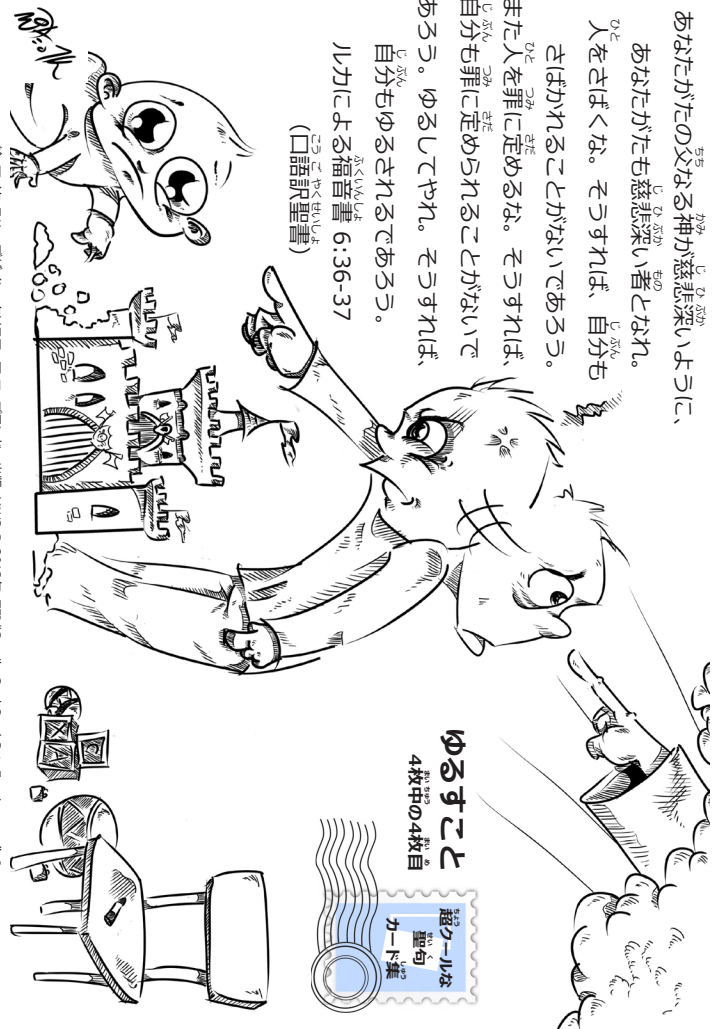 あなたがたの父なる神が慈悲深いように、
あなたがたも慈悲深い者となれ。
人をさばくな。そうすれば、自分も
さばかれることがないであろう。
また人を罪に定めるな。そうすれば、
自分も罪に定められることがないで
あろう。ゆるしてやれ。そうすれば、
自分もゆるされるであろう。
ルカによる福音書 6:36-37
(口語訳聖書)
ゆるすこと
4枚中の4枚目
超クールな
聖句
カード集
X
A
C